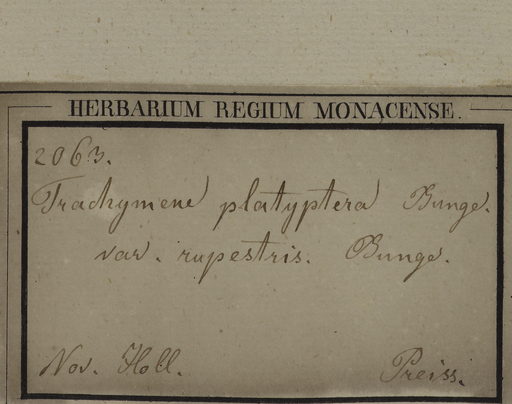 HERBARIUM REGIUM MONACENSE.
2063.
Trachymene platyptera Bunge.
var. rupestris. Bunge.
Nov. Holl. Preiss.